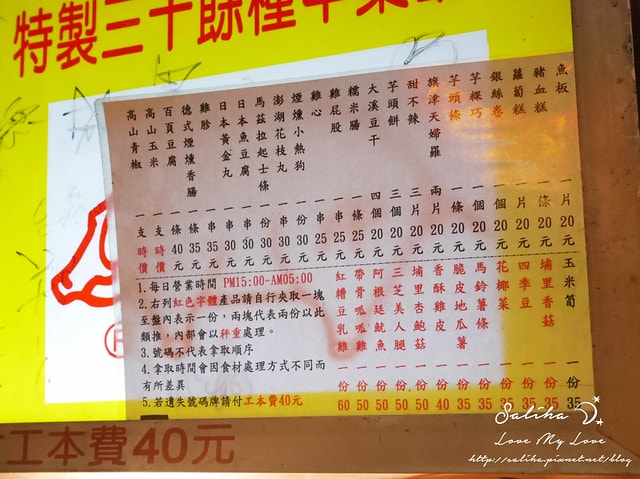 特製三十餘種
魚板 一片 20元
豬血糕 一條 20元
蘿蔔糕 一片 20元
銀絲卷 一個 20元
芋粿巧 一個 20元
芋頭條 一條 20元
旗津天婦羅 兩片 20元
甜不辣 三片 20元
芋頭餅 三個 20元
大溪豆干 四個 20元
糯米腸 一條 25元
雞屁股 一串 25元
雞心 一串 25元
煙燻小熱狗 一份 30元
澎湖花枝丸 一串 30元
馬茲拉起士條 一份 30元
日本魚豆腐 一串 30元
日本黃金丸 一串 30元
雞胗 一串 35元
德式煙燻香腸 一條 35元
百頁豆腐 一條 40元
高山玉米 一支 時價
高山青椒 一支 時價
玉米筍 一份 35
埔里香菇 一份 35
四季豆 一份 35
花椰菜 一份 35
馬鈴薯條 一份 35
脆皮地瓜薯 一份 35
香酥雞皮 一份 40
埔里杏鮑菇 一份 50
三芝美人腿 一份 50
阿根廷魷魚 一份 50
帶骨呱呱雞 一份 50
紅糟豆乳雞 一份 60
1.每日營業時間 PM15:00~AM05:00
2.右列紅色字體產品請自行夾取一塊
至盤內表示一份，兩塊代表兩份以此
類推，內部會以秤重處理。
3.號碼不代表拿取順序
4.拿取時間會因食材處理方式不同而
有所差異
5.若遺失號碼牌請付工本費40元
工本費40元
Saliha
Love My Love
http://saliha.pixnet.net/blog